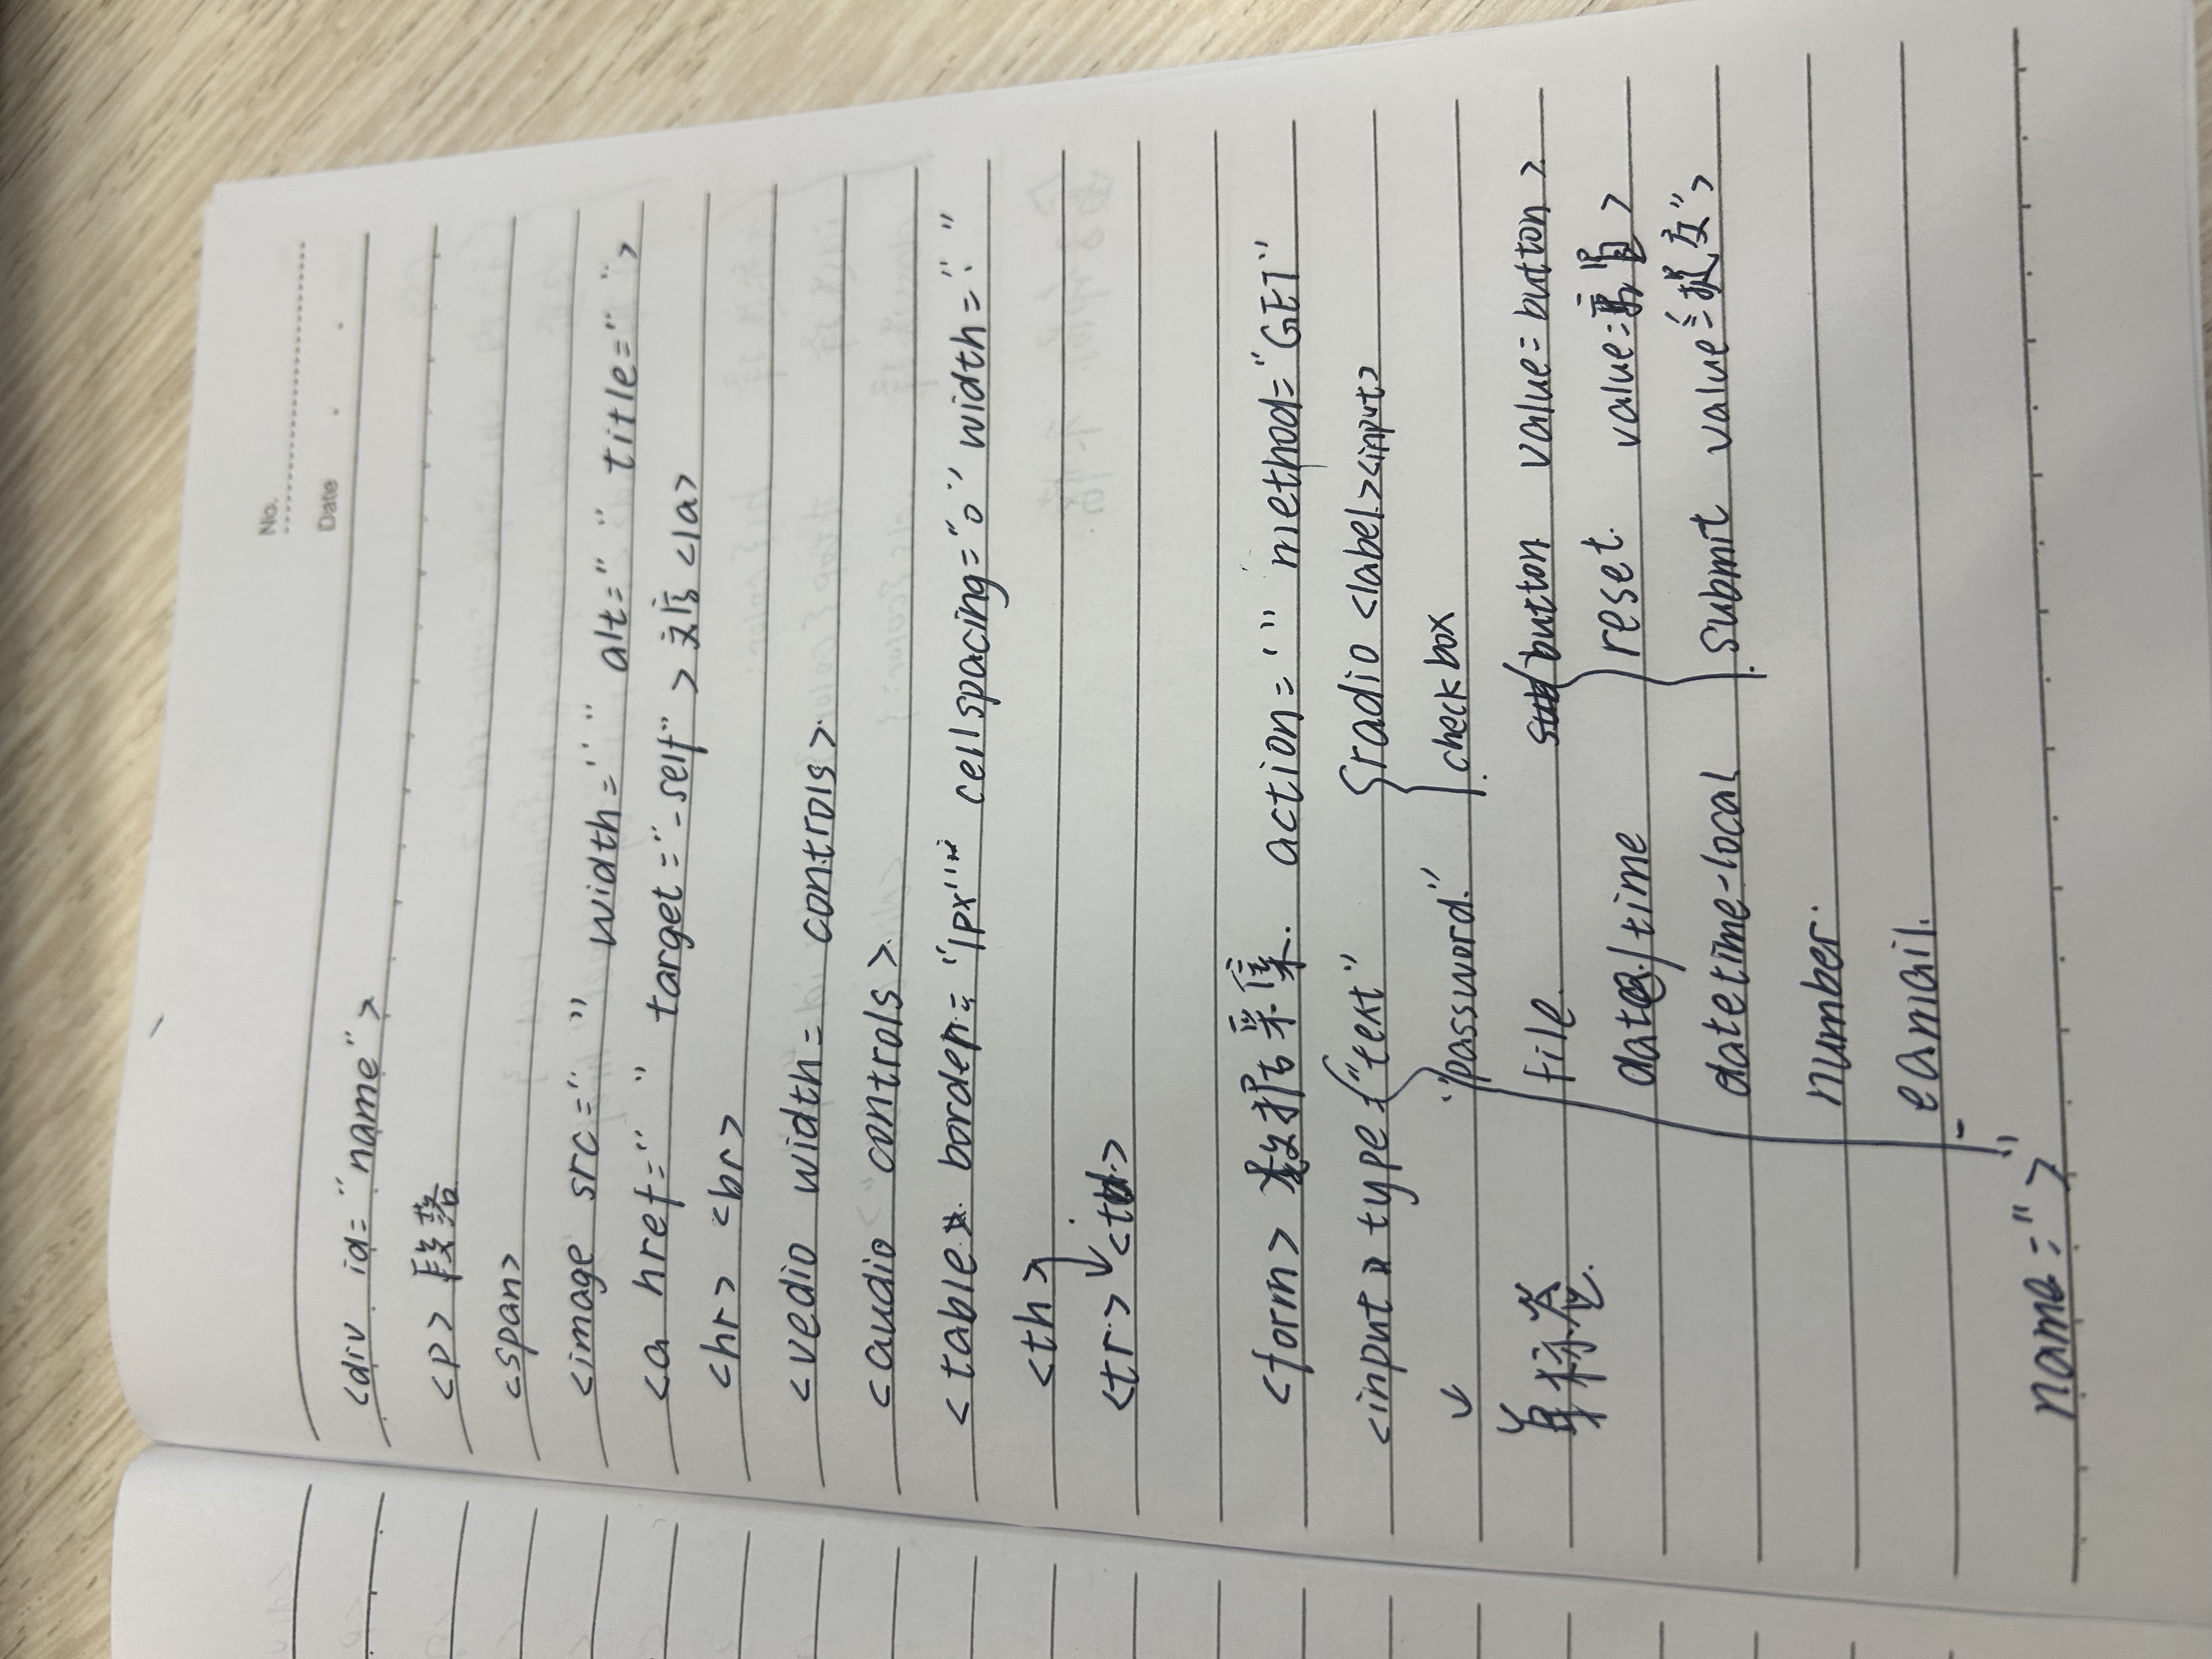 No.
Date
<div id="name">
<p> 段落
<span>
<image src=" " width=" " alt=" " title=" ">
<a href=" " target="_self" > </a>
<hr> <br>
<vedio width= controls>
<audio controls>
<table border= "1px" cellspacing="0" width=" "
<th>
<tr> <td>
<form> 数据采集. action=" " method="GET"
<input type="text"
"password"
file
date/time
datetime-local
number
eamail
radio <label><input>
checkbox
button value=button>
reset value=重置>
submit value="提交">
单标签
name=" >"